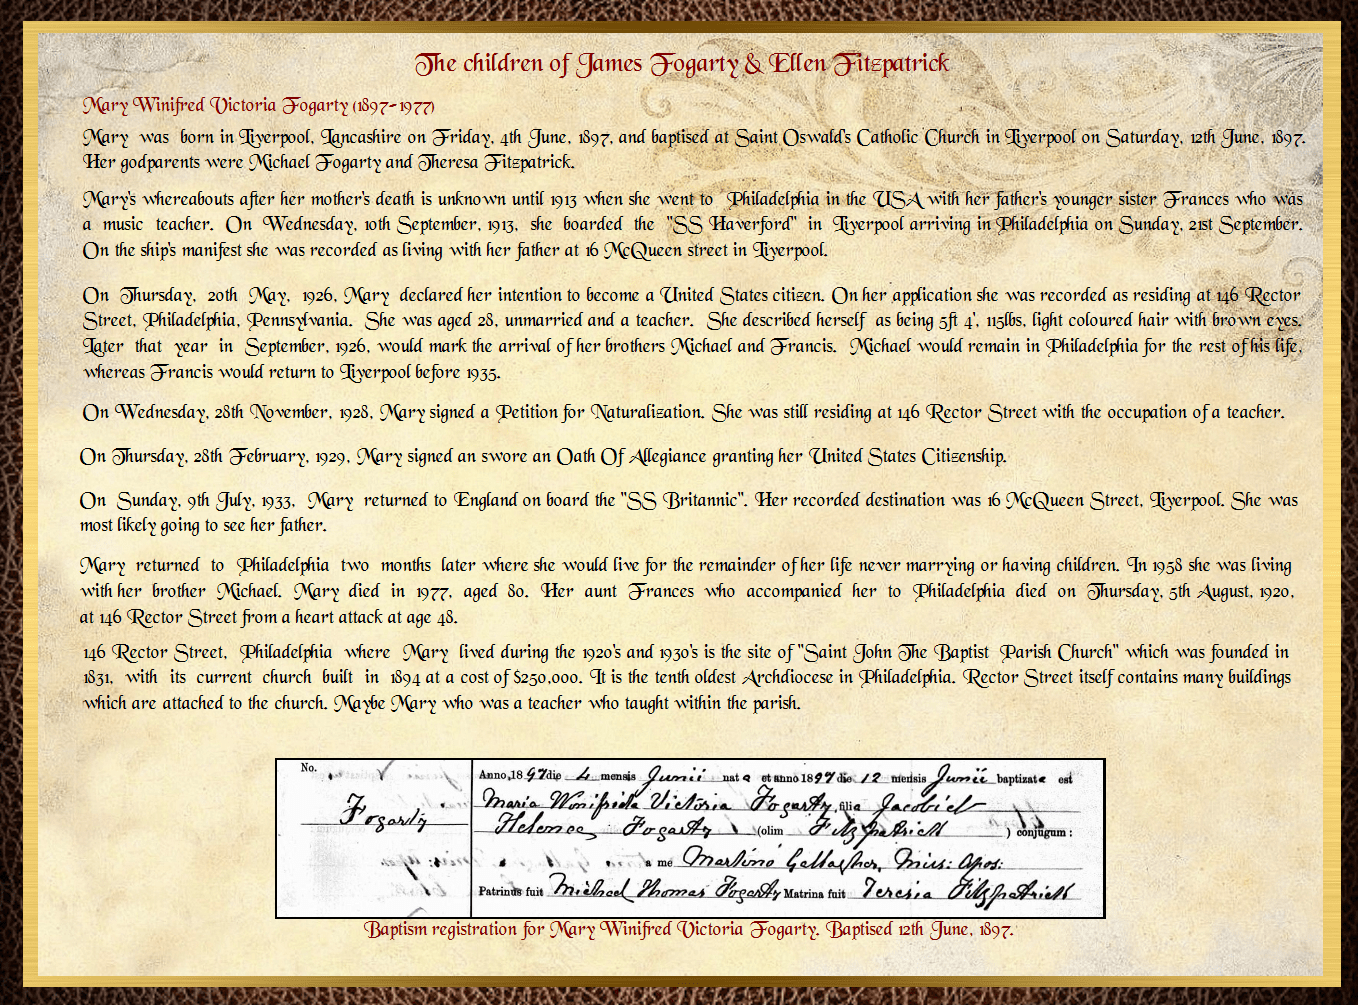 The children of James Fogarty & Ellen Fitzpatrick
Mary Winifred Victoria Fogarty (1897-1977)
Mary was born in Liverpool, Lancashire on Friday, 4th June, 1897, and baptised at Saint Oswald's Catholic Church in Liverpool on Saturday, 12th June, 1897.
Her godparents were Michael Fogarty and Theresa Fitzpatrick.
Mary's whereabouts after her mother's death is unknown until 1913 when she went to Philadelphia in the USA with her father's younger sister Frances who was
a music teacher. On Wednesday, 10th September, 1913, she boarded the "SS Haverford" in Liverpool arriving in Philadelphia on Sunday, 21st September.
On the ship's manifest she was recorded as living with her father at 16 McQueen street in Liverpool.
On Thursday, 20th May, 1926, Mary declared her intention to become a United States citizen. On her application she was recorded as residing at 146 Rector
Street, Philadelphia, Pennsylvania. She was aged 28, unmarried and a teacher. She described herself as being 5ft 4', 115lbs, light coloured hair with brown eyes.
Later that year in September, 1926, would mark the arrival of her brothers Michael and Francis. Michael would remain in Philadelphia for the rest of his life,
whereas Francis would return to Liverpool before 1935.
On Wednesday, 28th November, 1928, Mary signed a Petition for Naturalization. She was still residing at 146 Rector Street with the occupation of a teacher.
On Thursday, 28th February, 1929, Mary signed an swore an Oath Of Allegiance granting her United States Citizenship.
On Sunday, 9th July, 1933, Mary returned to England on board the "SS Britannic". Her recorded destination was 16 McQueen Street, Liverpool. She was
most likely going to see her father.
Mary returned to Philadelphia two months later where she would live for the remainder of her life never marrying or having children. In 1958 she was living
with her brother Michael. Mary died in 1977, aged 80. Her aunt Frances who accompanied her to Philadelphia died on Thursday, 5th August, 1920,
at 146 Rector Street from a heart attack at age 48.
146 Rector Street, Philadelphia where Mary lived during the 1920's and 1930's is the site of "Saint John The Baptist Parish Church" which was founded in
1831, with its current church built in 1894 at a cost of $250,000. It is the tenth oldest Archdiocese in Philadelphia. Rector Street itself contains many buildings
which are attached to the church. Maybe Mary who was a teacher who taught within the parish.
No.
Anno, 1897 die 4 mensis Junii nata et anno 1897 die 12 mensis Junii baptizata est
Fogarty
Maria Winifrida Victoria Fogarty, filia Jacobi et
Helenae Fogarty (olim Fitzpatrick ) conjugum:
a me Martino Gallagher, Miss: Apos:
Patrinus fuit Michael Thomas Fogarty Matrina fuit Teresia Fitzpatrick
Baptism registration for Mary Winifred Victoria Fogarty. Baptised 12th June, 1897.